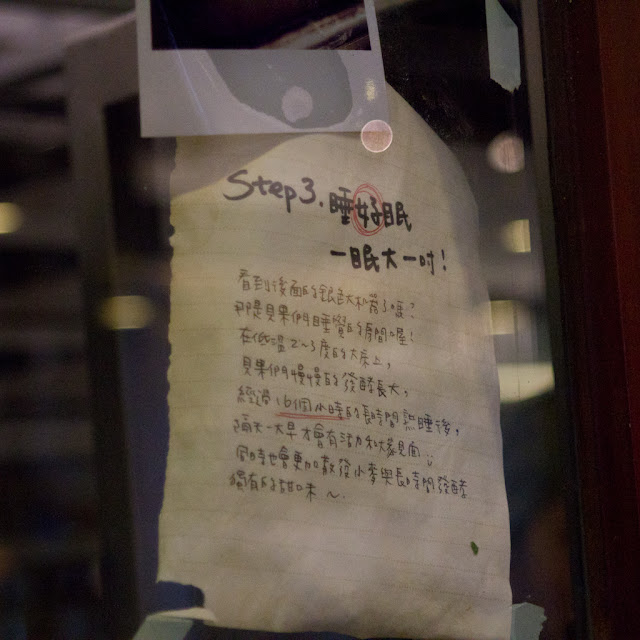 Step3.睡好眠
一眠大一吋!
看到後面的銀色大 了嗎?
那是貝果們睡覺的房間喔!
在低溫2~3度的床上,
貝果們慢慢的發酵長大,
經過16個小時的長時間熟睡後,
隔天一大早才會有活力和 見面
同時也會更加散發小麥與長時間發酵
獨有的甜味~.